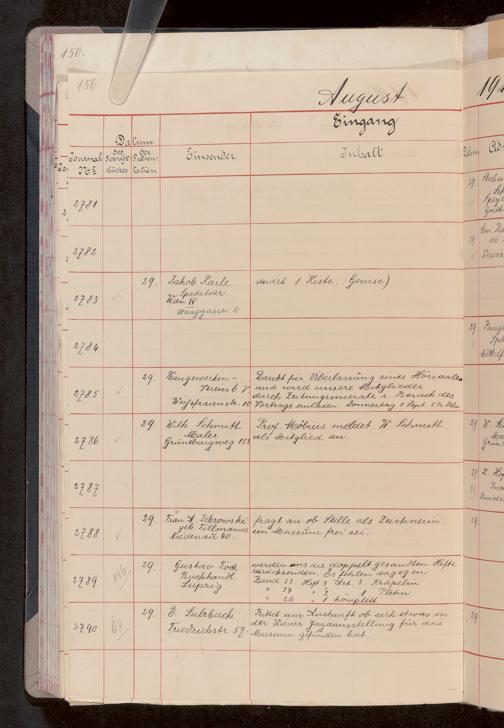 150.
156
August
Eingang
Journal
№
Datum
des Schriftstückes
der Präsentation
Einsender
Inhalt
2781
2782
2783
29.
Jakob Karle
Spediteur
Wien IV
Waaggasse
sendet 1 Kiste. Gemse)
2784
2785
29.
Baugewerken-
Verein E. V.
Weissfrauenstr. 10
Dankt für Überlassung eines Hörsaales
und werd unsere Mitglieder
durch Zeitungsinserate z. Besuch des
Vortrags einladen Donnerstag 1 Sept.
2786
29.
Wilh Schmitt
Maler
Grüneburgweg 153
Prof. Möbius meldet W Schmitt
als Mitglied an.
2787
2788
29.
Frau A Zebrowski
geb. Tillmanns
Niedenau 40.
fragt an ob Stelle als Zeichnerin
im Museum frei sei.
2789
146
29.
Gustav Fock
Buchhandl.
Leipzig
werden uns die doppelt gesandten Hefte
zurücksenden. Es fehlen dagegen
Band 23 Heft 3 Art. 3. Kräpelin
" 24 " 2 " Plehn
" 26 " 2 komplett
2790
68
29.
E. Sulzbach
Friedrichstr. 57.
Bittet um Auskunft ob sich etwas in
der Wiener Jagdausstellung für das
Museum gefunden hat.
191
Datum
29
29
29
29
29
29
29